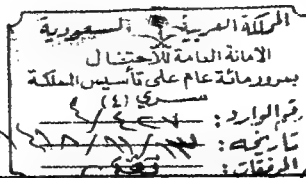 المملكة العربية السعودية
الأمانة العامة للاحتفال
بمرور مائة عام على تأسيس المملكة
سري (٤)
رقم الوارد: ٤٢٧/
تاريخه:
المرفقات: